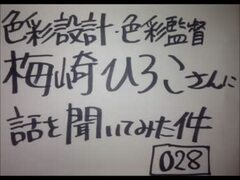 色彩設計・色彩監督
梅崎ひろこさんに
話を聞いてみた件
028